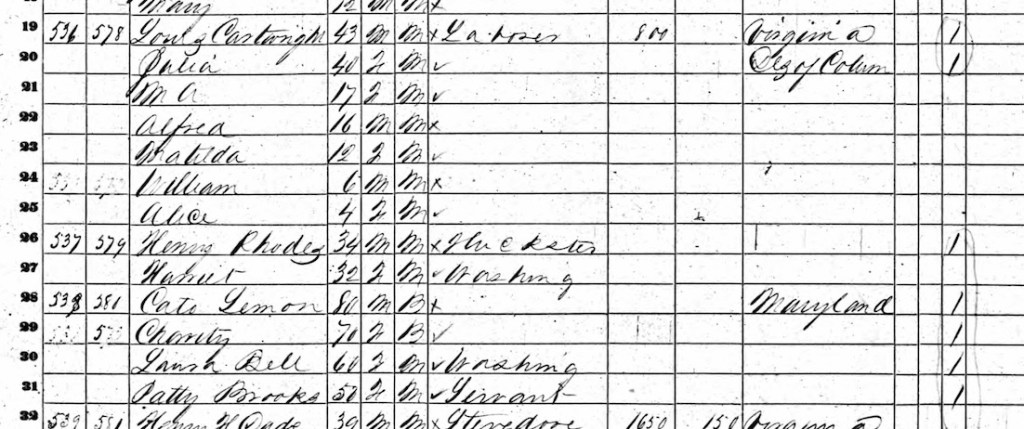 Mary 12 M
19 536 578 Louis Cartwright 43 M M x Laborer 800 Virginia 1
20 Julia 40 F M Des of Colum 1
21 M A 17 F M
22 Alfred 16 M M x
23 Matilda 12 F M
24 William 6 M M x
25 Alice 4 F M
26 537 579 Henry Rhodes 34 M M x Huckster 1
27 Harriet 32 F M Washing
28 538 581 Cato Lemon 80 M B x Maryland 1
29 Charity 70 F B 1
30 Bell 60 F M Washing 1
31 Patty Brooks 50 F M Servant 1
32 539 581 Henry H Dade 39 M M x Stevedore 1650 150 Virginia